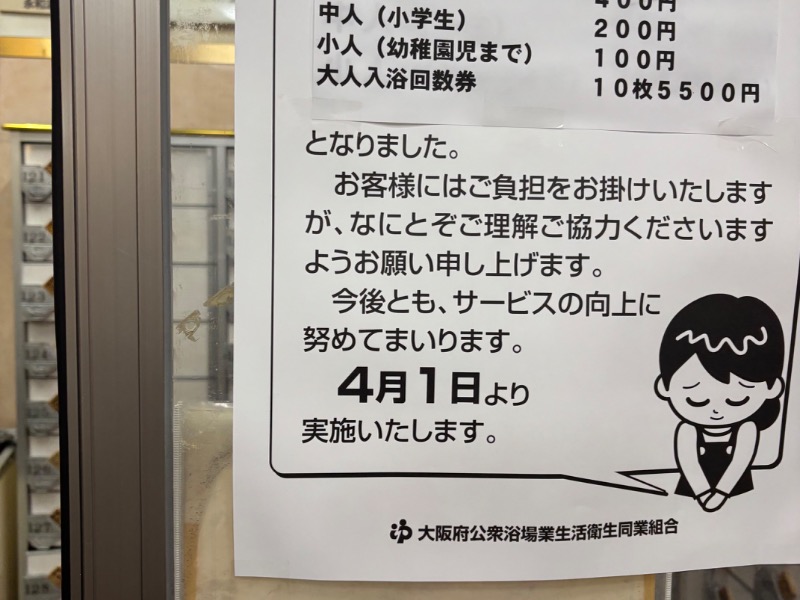 400円
中人（小学生）　200円
小人（幼稚園児まで）　100円
大人入浴回数券　10枚5500円
となりました。
お客様にはご負担をお掛けいたします
が、なにとぞご理解ご協力くださいます
ようお願い申し上げます。
今後とも、サービスの向上に
努めてまいります。
4月1日より
実施いたします。
大阪府公衆浴場業生活衛生同業組合
121
122
123
124
127